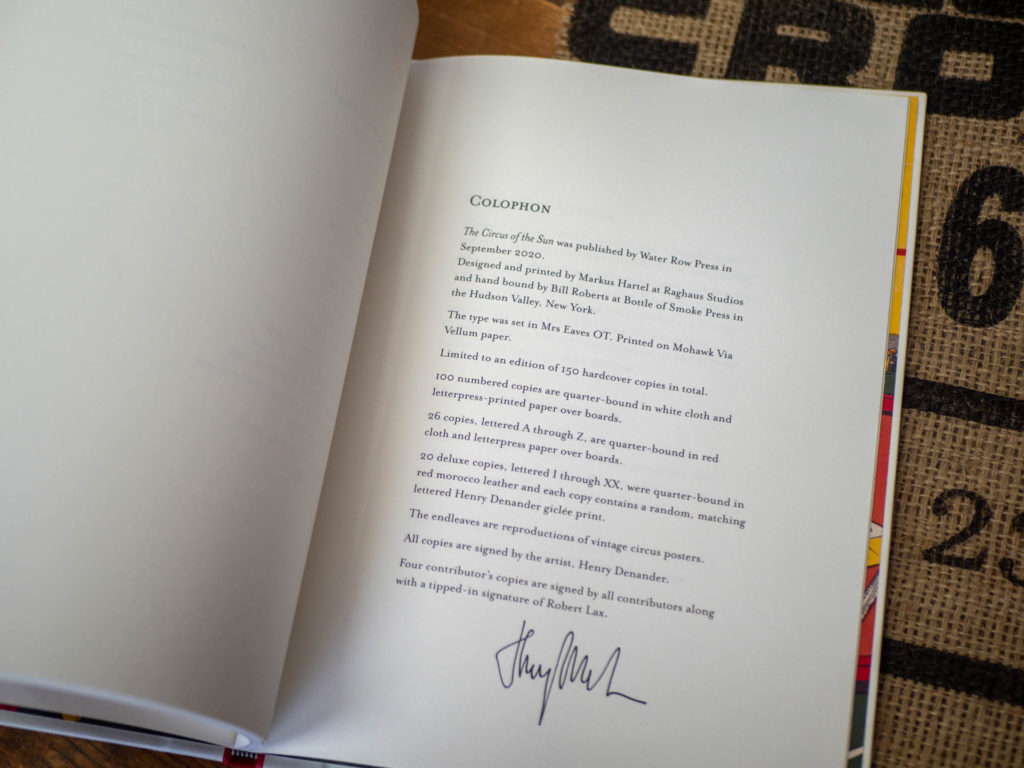 COLOPHON
The Circus of the Sun was published by Water Row Press in
September 2020.
Designed and printed by Markus Hartel at Raghaus Studios
and hand bound by Bill Roberts at Bottle of Smoke Press in
the Hudson Valley, New York.
The type was set in Mrs Eaves OT. Printed on Mohawk Via
Vellum paper.
Limited to an edition of 150 hardcover copies in total.
100 numbered copies are quarter-bound in white cloth and
letterpress-printed paper over boards.
26 copies, lettered A through Z, are quarter-bound in red
cloth and letterpress paper over boards.
20 deluxe copies, lettered I through XX, were quarter-bound in
red morocco leather and each copy contains a random, matching
lettered Henry Denander giclée print.
The endleaves are reproductions of vintage circus posters.
All copies are signed by the artist, Henry Denander.
Four contributor's copies are signed by all contributors along
with a tipped-in signature of Robert Lax.
6
23